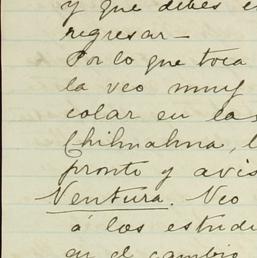 y que debes e
regresar—
Por lo que toca
la veo muy
colar en las
Chihuahua, l
pronto y avis
Ventura. Veo
á los estudi
en el cambio